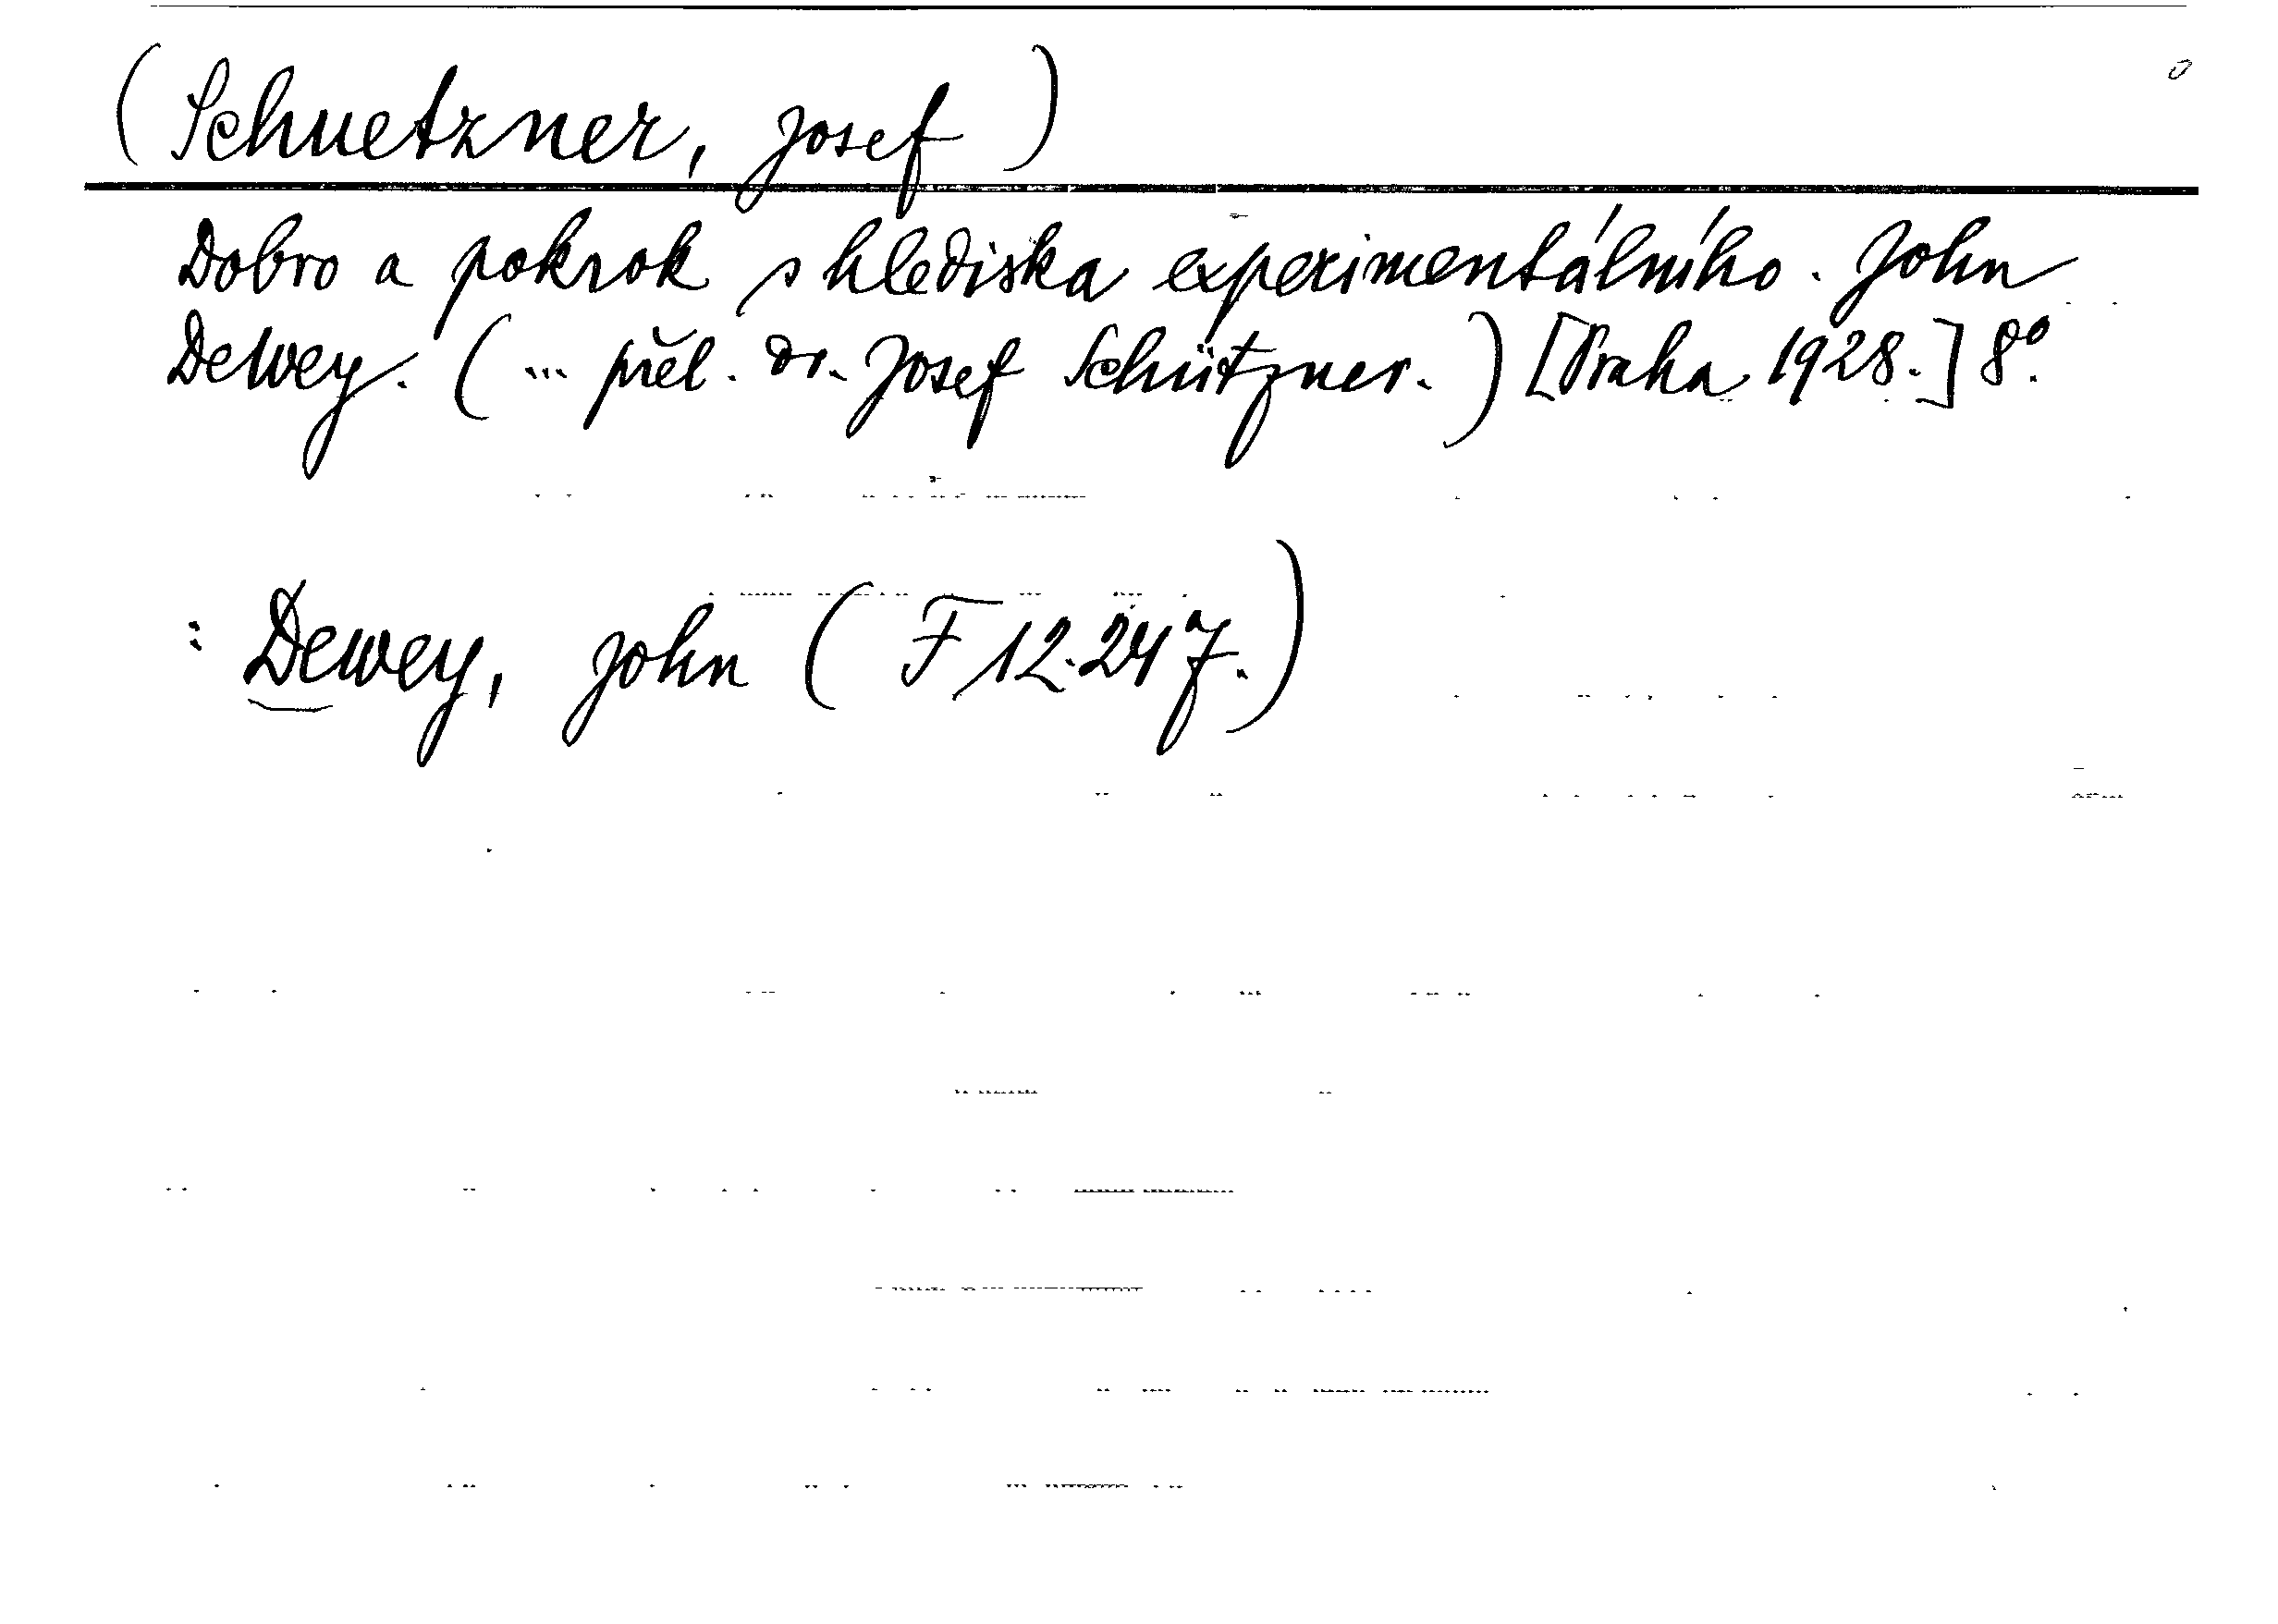 (Schuetzner, Josef)
Dobro a pokrok s hlediska experimentálního. John
Dewey. (... přel. dr. Josef Schützner.) [Praha 1928.] 8º.
: Dewey, John (F 12.247.)